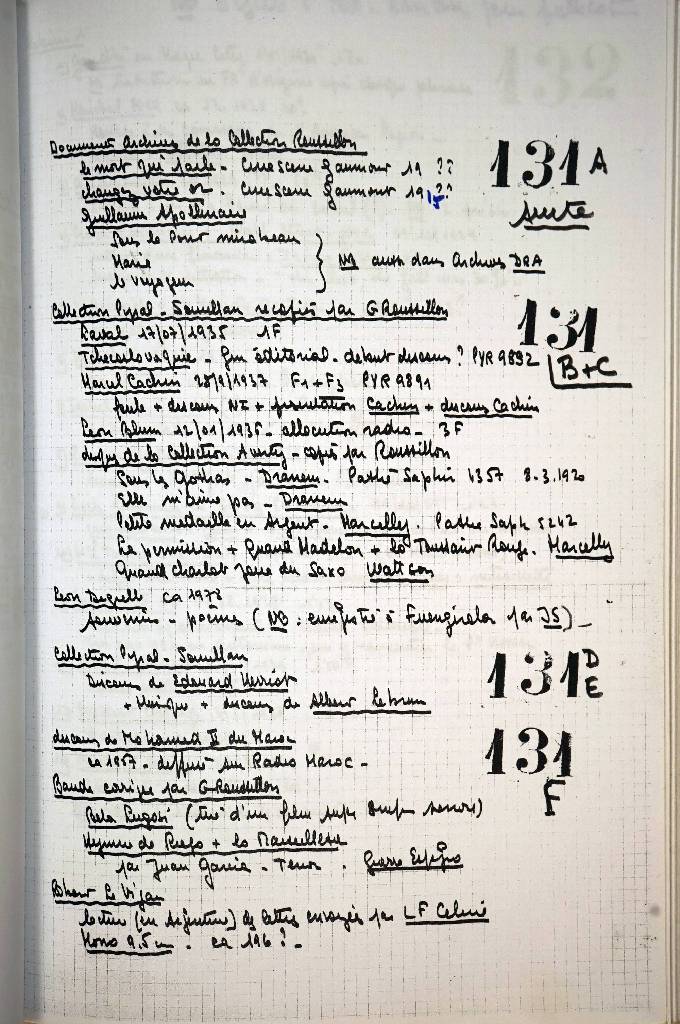 Documents Archives de la Collection Roussillon
131 A
suite
le mort qui parle - Cinescene Gaumont 19 ??
changez votre or - Cinescene Gaumont 19 15 ??
Guillaume Apollinaire
Sous le Pont mirabeau
Marie
le voyageur
NB aussi dans Archives DRA
Collection Pyral - Soumillan recopiés par G Roussillon
131
B+C
Laval 17/07/1935 1F
Tchecoslovaquie - Gun éditorial - debut discours ? PYR 9892
Marcel Cachin 28/9/1937 F1 + F3 PYR 9891
foule + discours NI + presentation Cachin + discours Cachin
Leon Blum 12/01/1935 - allocution radio - 3F
disques de la Collection Averty - copiés par Roussillon
Sous les Gothas - Dranem - Pathé Saphir 4357 8.3.1920
Elle m'aime pas - Dranem
Petite medaille en Argent - Marcelly - Pathe Saph 5242
La permission + Quand Madelon + la Toussaint Rouge - Marcelly
Quand Charlot joue du Saxo Wattson
Leon Degrelle ca 1978
souvenirs - poèmes (NB : enregistré à Fuengirola par JS) -
Collection Pyral - Soumillan
131 D
E
Discours de Edouard Herriot
+ Musique + discours de Albert Lebrun
131
F
discours de Mohamed II du Maroc
ca 1957 - diffusé sur Radio Maroc -
Bande corrigée par G Roussillon
Bela Lugosi (tiré d'un film sup8 sonore)
Hymne de Riego + la Marseillese
par Juan Garcia - Tenor . Guerre Espagne
Robert Le Vigan
lecture (en Argentine) de lettres envoyées par LF Celine
Mono 9,5 cm . ca 196 ? -